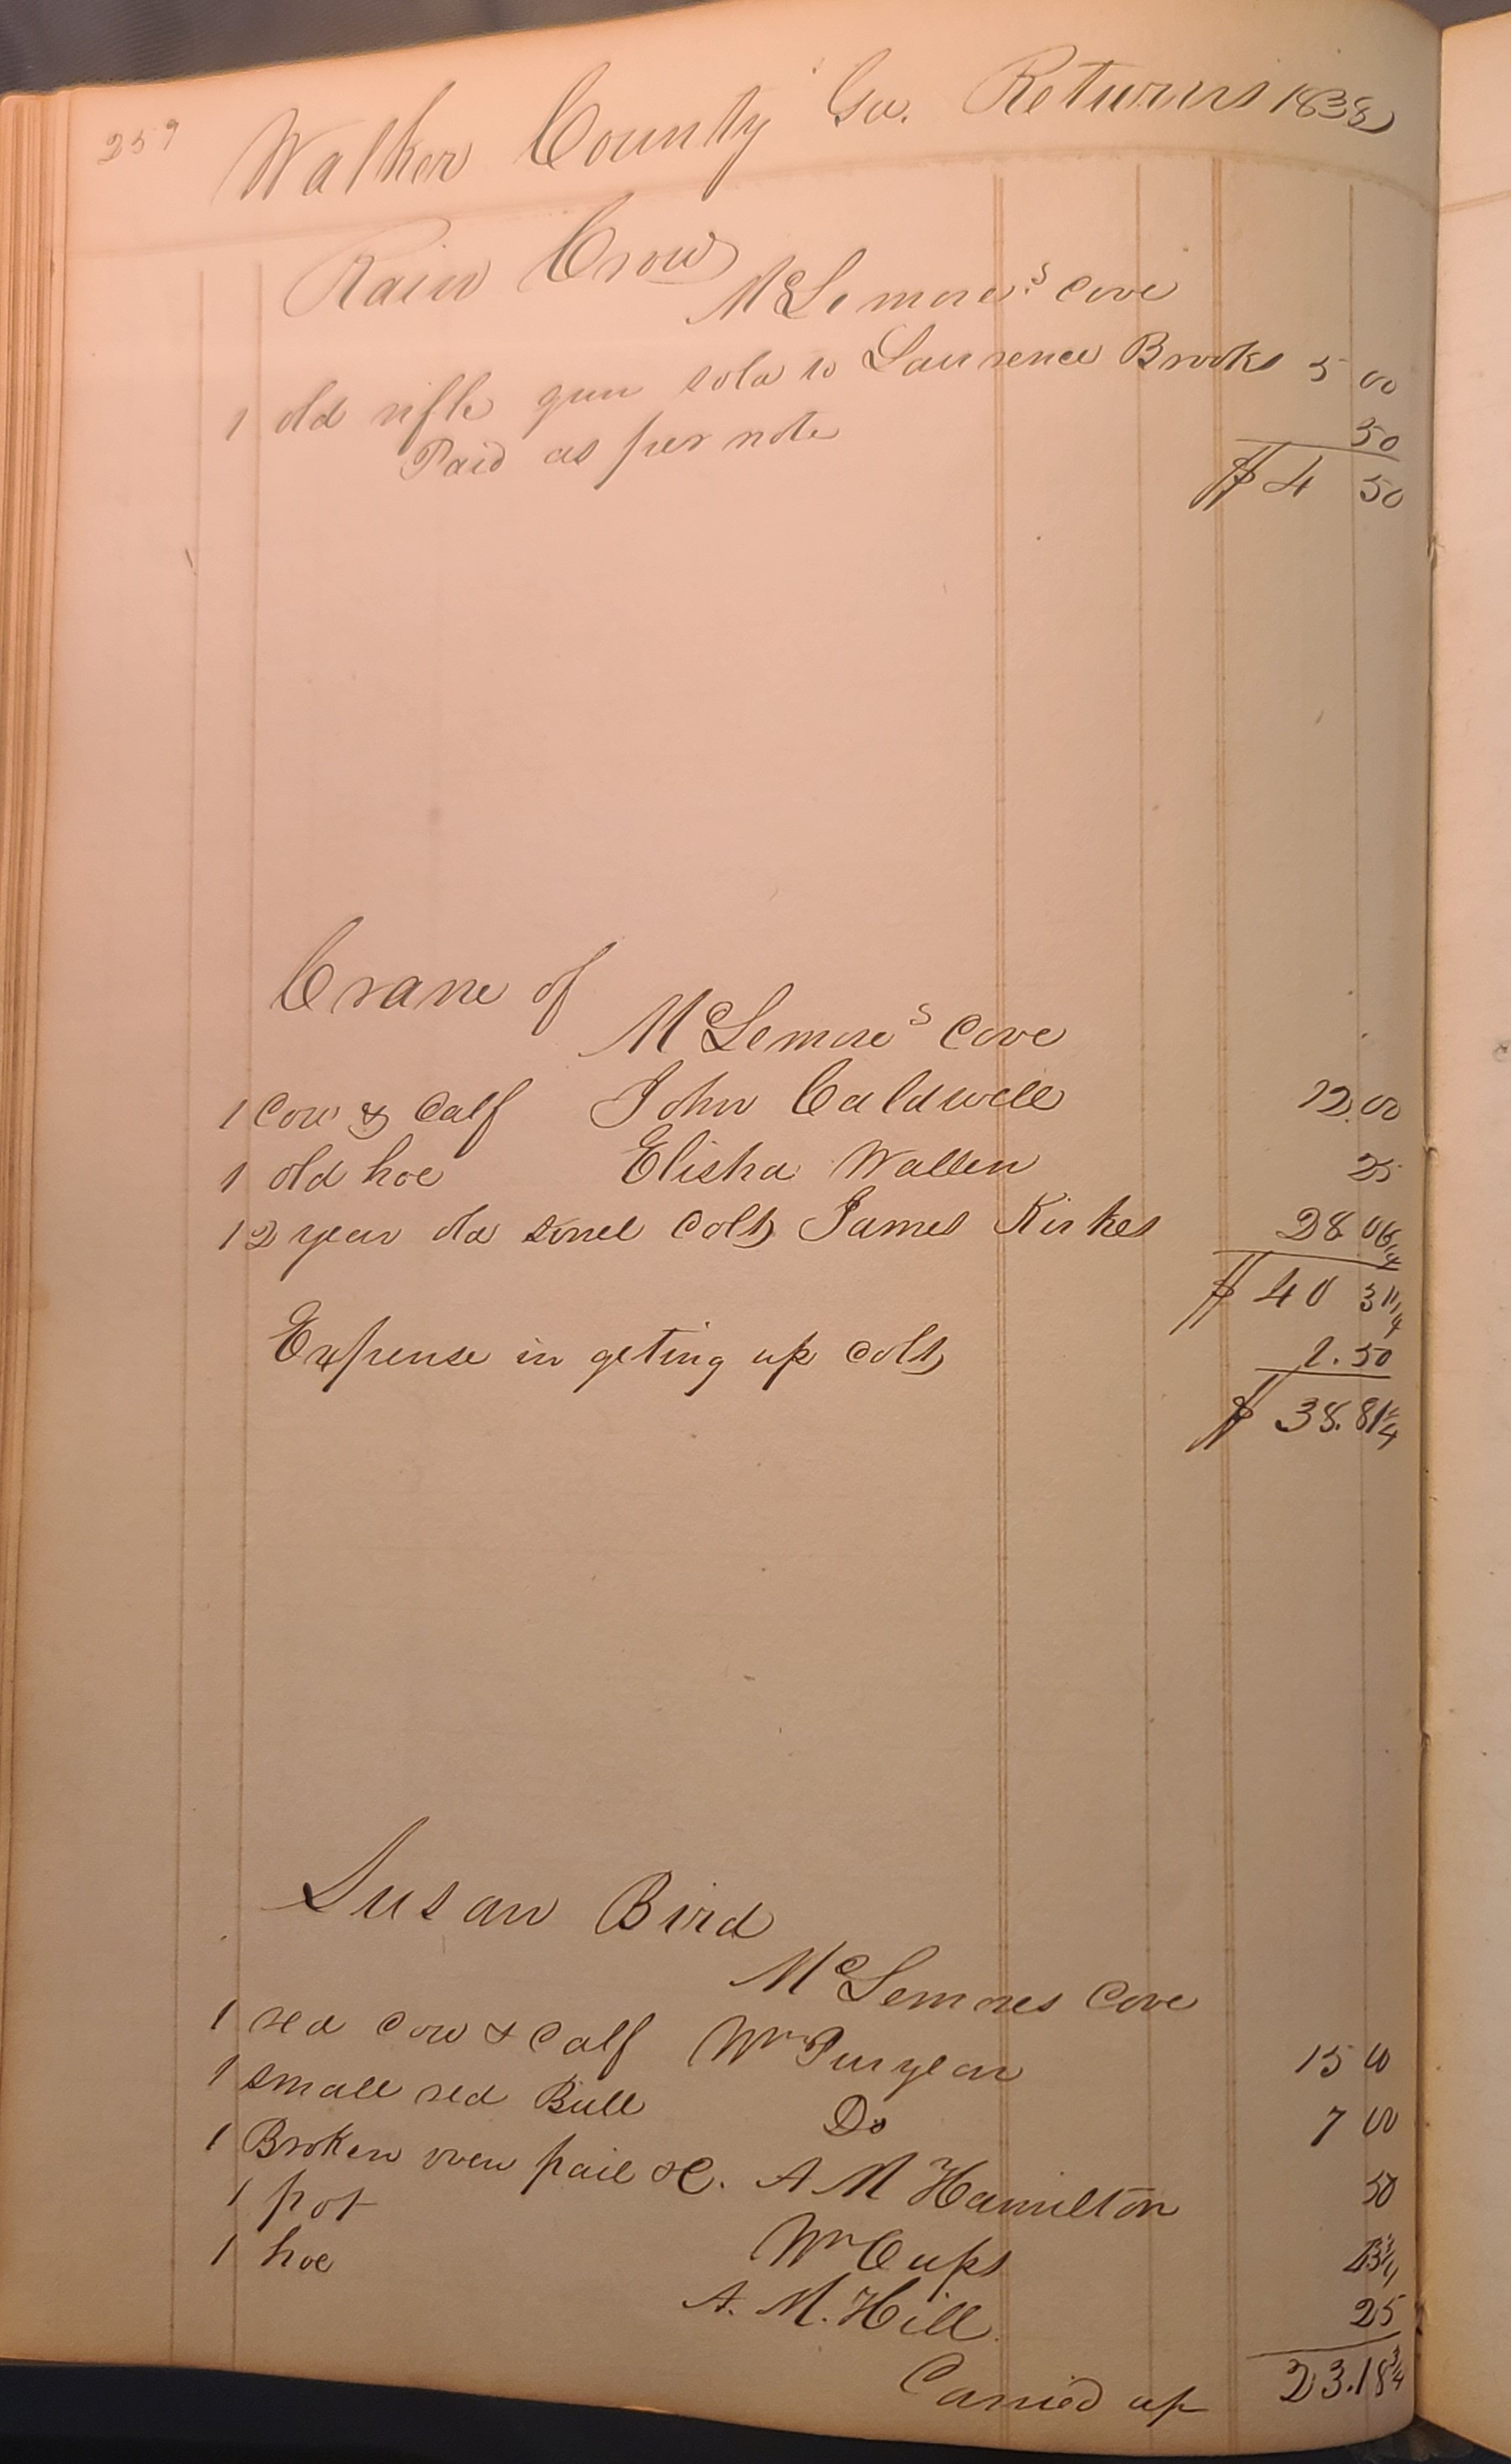 259
Walker County Ga. Returns 1838
Rain Crow
McLemore's Cove
1 old rifle gun sold to Laurence Brooks 5 00
Paid as per note 50
$ 4 50
Crane of
McLemore's Cove
1 Cow & Calf John Caldwell 12.00
1 old hoe Elisha Wallen 25
1 2 year old sorrel Colt James Kirkes 28 06 1/4
$ 40 31 1/4
Expense in geting up Colt 1.50
$ 38.81 1/4
Susan Bird
McLemores Cove
1 red Cow & Calf Wm Puryear 15 00
1 small red Bull Do 7 00
1 Broken oven pail &C. A M Hamilton 50
1 pot Wm Cups 43 3/4
1 hoe A. M. Hill 25
Carried up 23.18 3/4